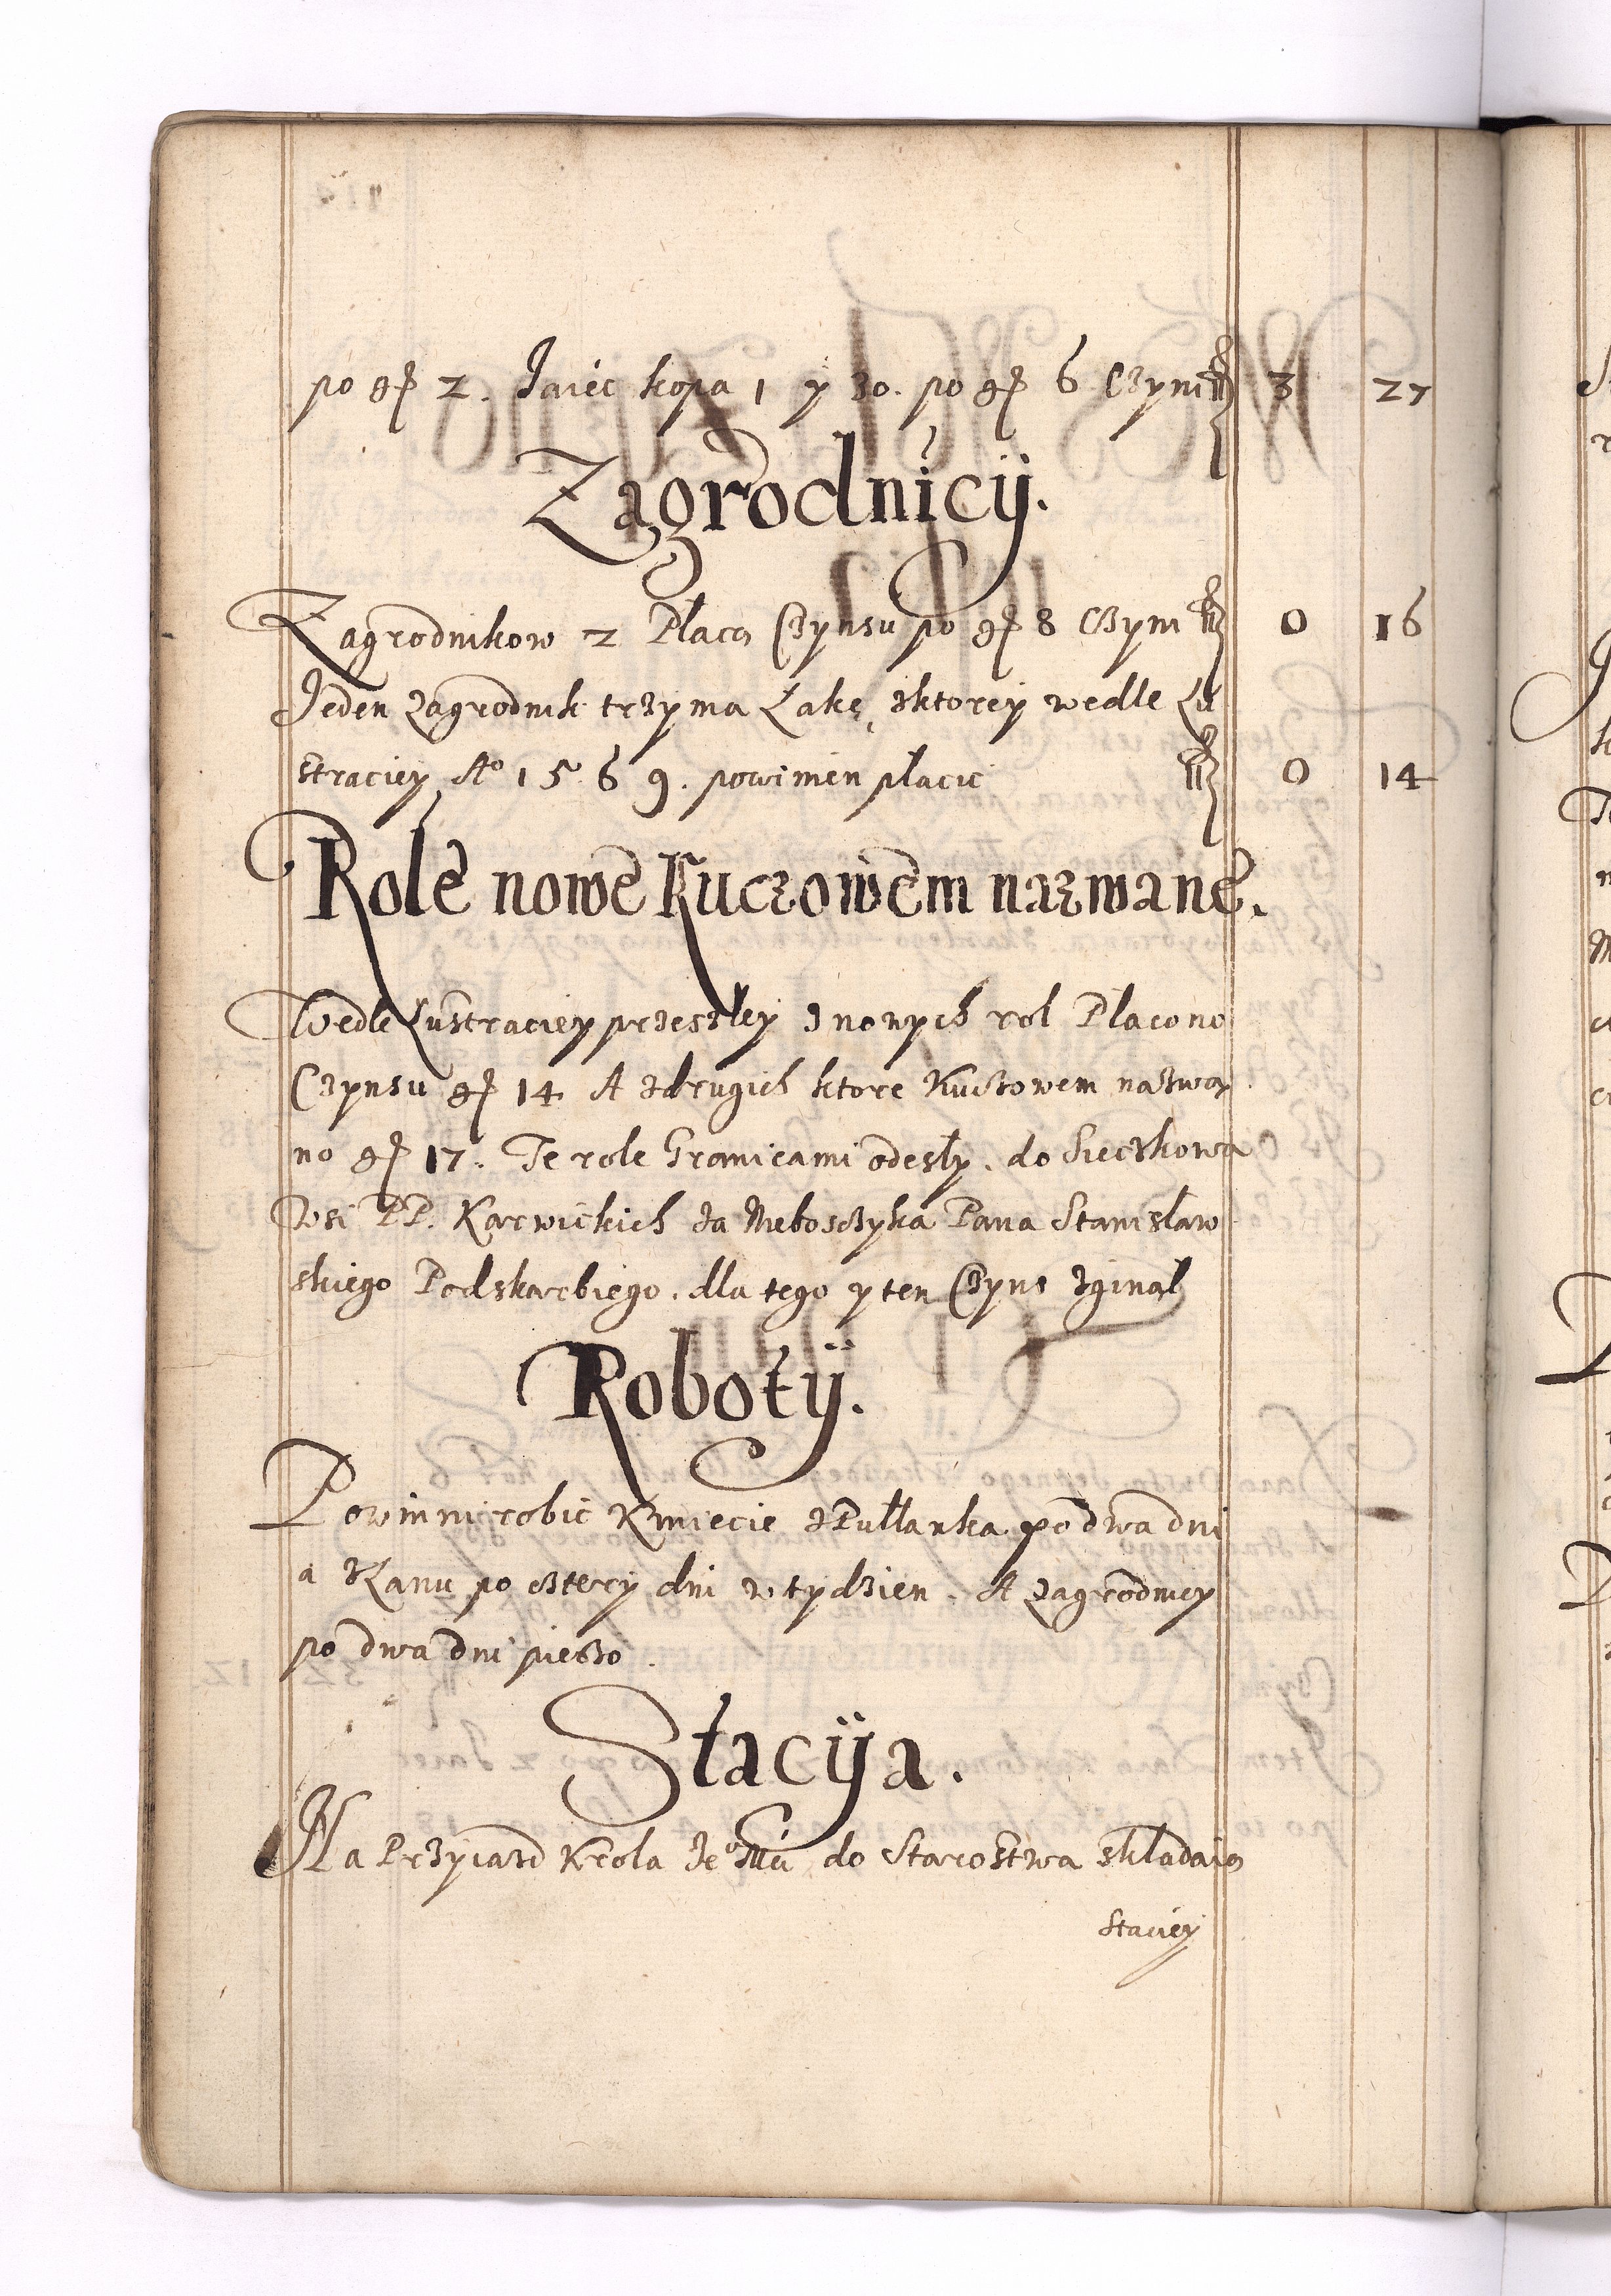 po gr 2. Jaiec kopa 1 y 30. po gr 6 Czyni 3 27
Zagrodnicÿ.
Zagrodnikow 2 Płacą Czynsu po gr 8 Czyni 0 16
Jeden Zagrodnik trzyma Łąkę, zktorey wedle Lu
straciey Aº 1569. powinien płacic 0 14
Role nowe Kuczowem nazwane.
Wedle Lustraciey przeszłey z nowych rol Płacono
Czynsu gr 14 A zdrugich ktore Kuczowem nazwa
no gr 17. Te role Granicami odeszły. do Sieczkowa
Wsi PP. Karwickich za Nieboszczyka Pana Stanisław
skiego Podskarbiego. dla tego y ten Czyns zginął
Robotÿ.
Powinni robic Kmiecie zPułłanka po dwa dni
a zŁanu po cztery dni w tydzien. A Zagrodnicy
po dwa dni pieszo.
Stacÿa.
Na Przyiazd Krola Jeº Mci do Starostwa składaią
Staciey